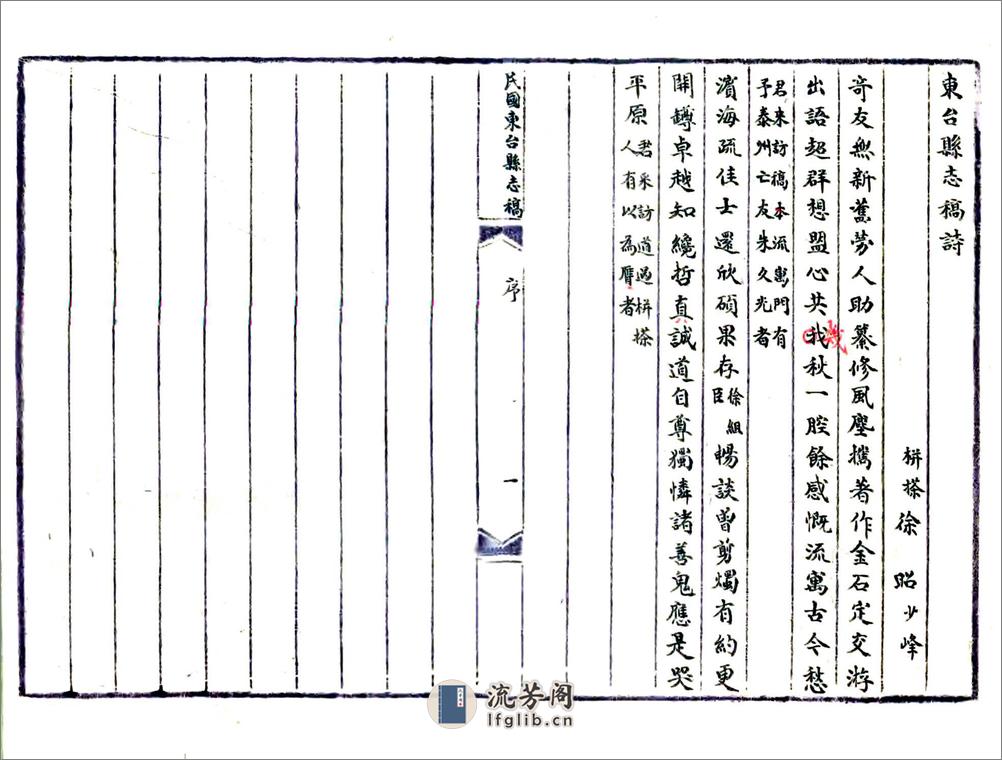 東台縣志稿詩
栟茶徐　昭少峰
奇友無新舊勞人助纂修風塵攜著作金石定交游
出語超群想盟心共我秋一腔餘感慨流寓古今愁
幾
君来訪稿本流寓門有
予泰州亡友朱久光者
濱海疏佳士還欣碩果存徐組臣暢談曾剪燭有約更
開罇卓越知纔哲真誠道自尊獨憐諸善鬼應是哭
平原君采訪道過栟茶
人有以為贋者
民國東台縣志稿
序
一
流芳阁
lfglib.cn